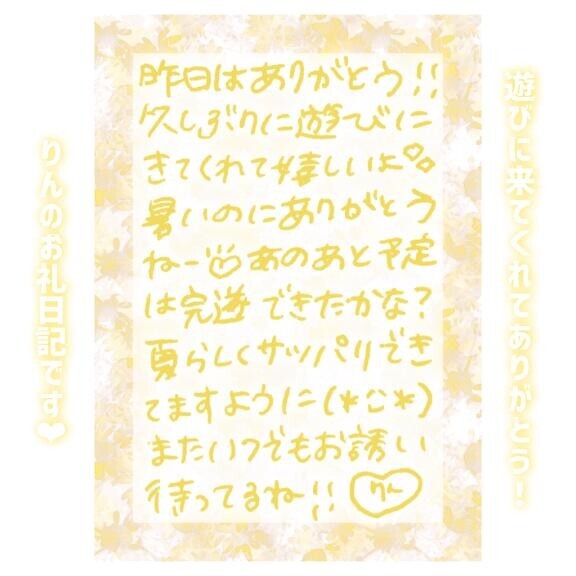 遊びに来てくれてありがとう！
昨日はありがとう!!
久しぶりに遊びに
きてくれて嬉しいよ♡♡
暑いのにありがとう
ねー♡あのあと予定
は完遂できたかな?
夏らしくサッパリでき
てますように(*^^*)
またいつでもお誘い
待ってるね!! りん
りんのお礼日記です❤